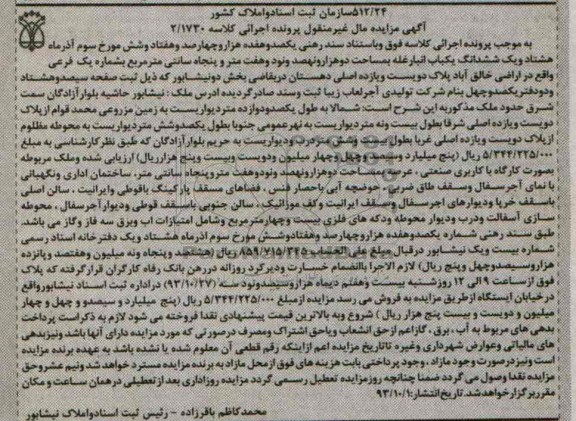 ۵۱۲/۲۴سازمان ثبت اسنادواملاک کشور
آگهی مزایده مال غیرمنقول پرونده اجرائی کلاسه ۲/۱۷۳۰
به موجب پرونده اجرائی کلاسه فوق وباستناد سند رهنی یکصدوهفده هزاروچهارصد وهفتاد وشش مورخ سوم آذرماه
هشتاد ویک ششدانگ یکباب انبارغله بمساحت دوهزارونهصد ونود وهفت متر و پنجاه سانتی مترمربع بشماره یک فرعی
واقع در اراضی خالق آباد پلاک دویست ویازده اصلی دهستان دربقاضی بخش دونیشابور که ذیل ثبت صفحه سیصدوهشتاد
ودودفتریکصدوچهل بنام شرکت تولیدی آجرلعاب زیبا ثبت وسند صادرگردیده ادرس ملک : نیشابور حاشیه بلوارآزادگان سمت
شرق حدود ملک مذکوربه این شرح است: شمالا به طول یکصدودوازده متردیواریست به زمین مزروعی محمد قوام ازپلاک
دویست ویازده اصلی شرقا بطول بیست ونه متردیواریست به نهرعمومی جنوبا بطول یکصدوشش متردیواریست به محوطه مظلوم
ازپلاک دویست ویازده اصلی غربا بطول بیست وشش متردرب ودیواریست به حریم بلوارآزادگان که طبق نظرکارشناسی به مبلغ
۵/۳۴۴/۲۲۵/۰۰۰ ریال (پنج میلیارد وسیصدوچهل وچهار میلیون ودویست وبیست وپنج هزارریال) ارزیابی شده وملک مربوطه
بصورت کارگاه با کاربری صنعتی ، عرصه بمساحت دوهزارونهصد ونودوهفت متروپنجاه سانتی متر، ساختمان اداری ونگهبانی
با نمای آجرسفال وسقف طاق ضربی ، حوضچه آبی باحصار فنس ، فضاهای مسقف پارکینگ باقوطی وایرانیت ، سالن اصلی
باسقف خرپا ودیوارهای اجرسفال وسقف ایرانیت وکف موزائیک ، سالن جنوبی باسقف قوطی ودیوارآجرسفال ، محوطه
سازی آسفالت ودرب ودیوار محوطه ودکه های فلزی بیست وچهارمترمربع وشامل امتیازات اب وبرق سه فاز وگاز می باشد.
طبق سند رهنی شماره یکصدوهفده هزاروچهارصد وهفتادوشش مورخ سوم اذرماه هشتاد ویک دفترخانه اسناد رسمی
شماره بیست ویک نیشابور درقبال مبلغ علی الحساب ۸۵۹/۷۱۵/۳۴۵ ریال (هشتصد وپنجاه ونه میلیون وهفتصد وپانزده
هزاروسیصدوچهل وپنج ریال) لازم الاجرا باانضمام خسارت ودیرکرد روزانه دررهن بانک رفاه کارگران قرارگرفته که پلاک
فوق ازساعت ۹ الی ۱۲ روزشنبه بیست وهفتم دیماه هزاروسیصدونود سه (۹۳/۱۰/۲۷) دراداره ثبت اسناد نیشابورواقع
درخیابان ایستگاه ازطریق مزایده به فروش می رسد مزایده ازمبلغ ۵/۳۴۴/۲۲۵/۰۰۰ ریال (پنج میلیارد و سیصدو و چهل و چهار
میلیون و دویست و بیست پنج هزار ریال ) شروع وبه بالاترین قیمت پیشنهادی نقدا فروخته می شود لازم به ذکراست پرداخت
بدهی های مربوط به آب ، برق ، گازاعم ازحق انشعاب ویاحق اشتراک ومصرف درصورتی که مورد مزایده دارای آنها باشد ونیزبدهی
های مالیاتی وعوارض شهرداری وغیره تاتاریخ مزایده اعم ازاینکه رقم قطعی آن معلوم شده یا نشده باشد به عهده برنده مزایده
است ونیزدرصورت وجود مازاد ، وجوه پرداختی بابت هزینه های فوق ازمحل مازاد به برنده مزایده مسترد خواهد شد ونیم عشروحق
مزایده نقدا وصول می گردد ضمنا چنانچه روزمزایده تعطیل رسمی گردد مزایده روزاداری بعد ازتعطیلی درهمان ساعت و مکان
مقرربرگزار خواهد شد. تاریخ انتشار: ۹۳/۱۰/۱
محمدکاظم باقرزاده - رئیس ثبت اسنادواملاک نیشابور